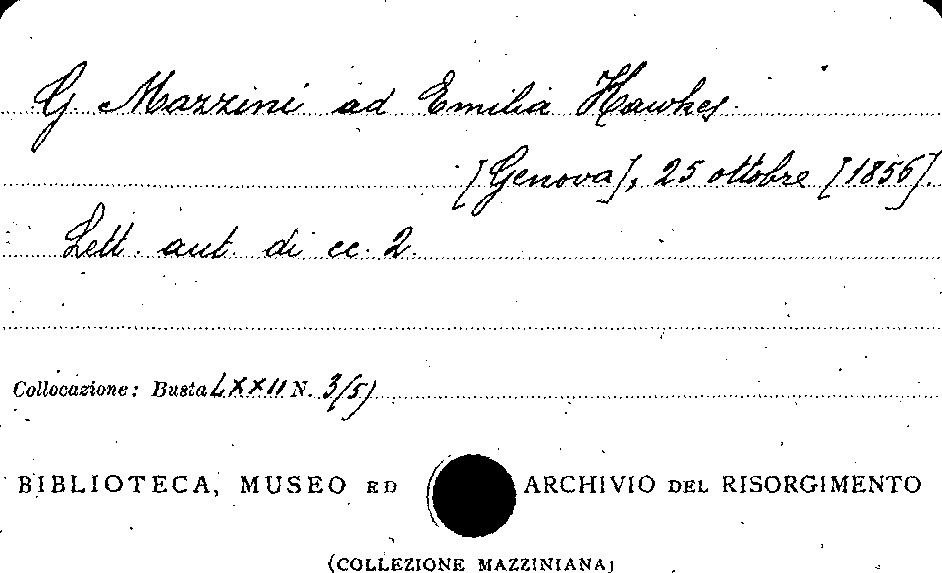 G. Mazzini ad Emilia Hawkes.
[Genova], 25 ottobre [1856].
Lett. aut. di cc. 2.
Collocazione: Busta LXXII N. 3/(5)
BIBLIOTECA, MUSEO ED ARCHIVIO DEL RISORGIMENTO
(COLLEZIONE MAZZINIANA)